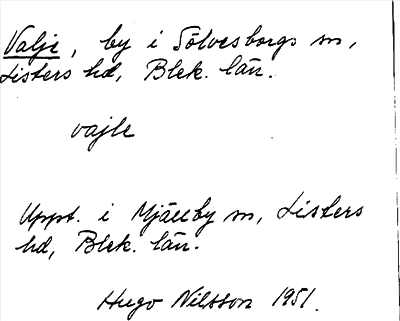 Valje, by i Sölvesborgs sn,
Listers hd, Blek. län.
vajle
Uppt. i Mjällby sn, Listers
hd, Blek. län.
Hugo Nilsson 1951.